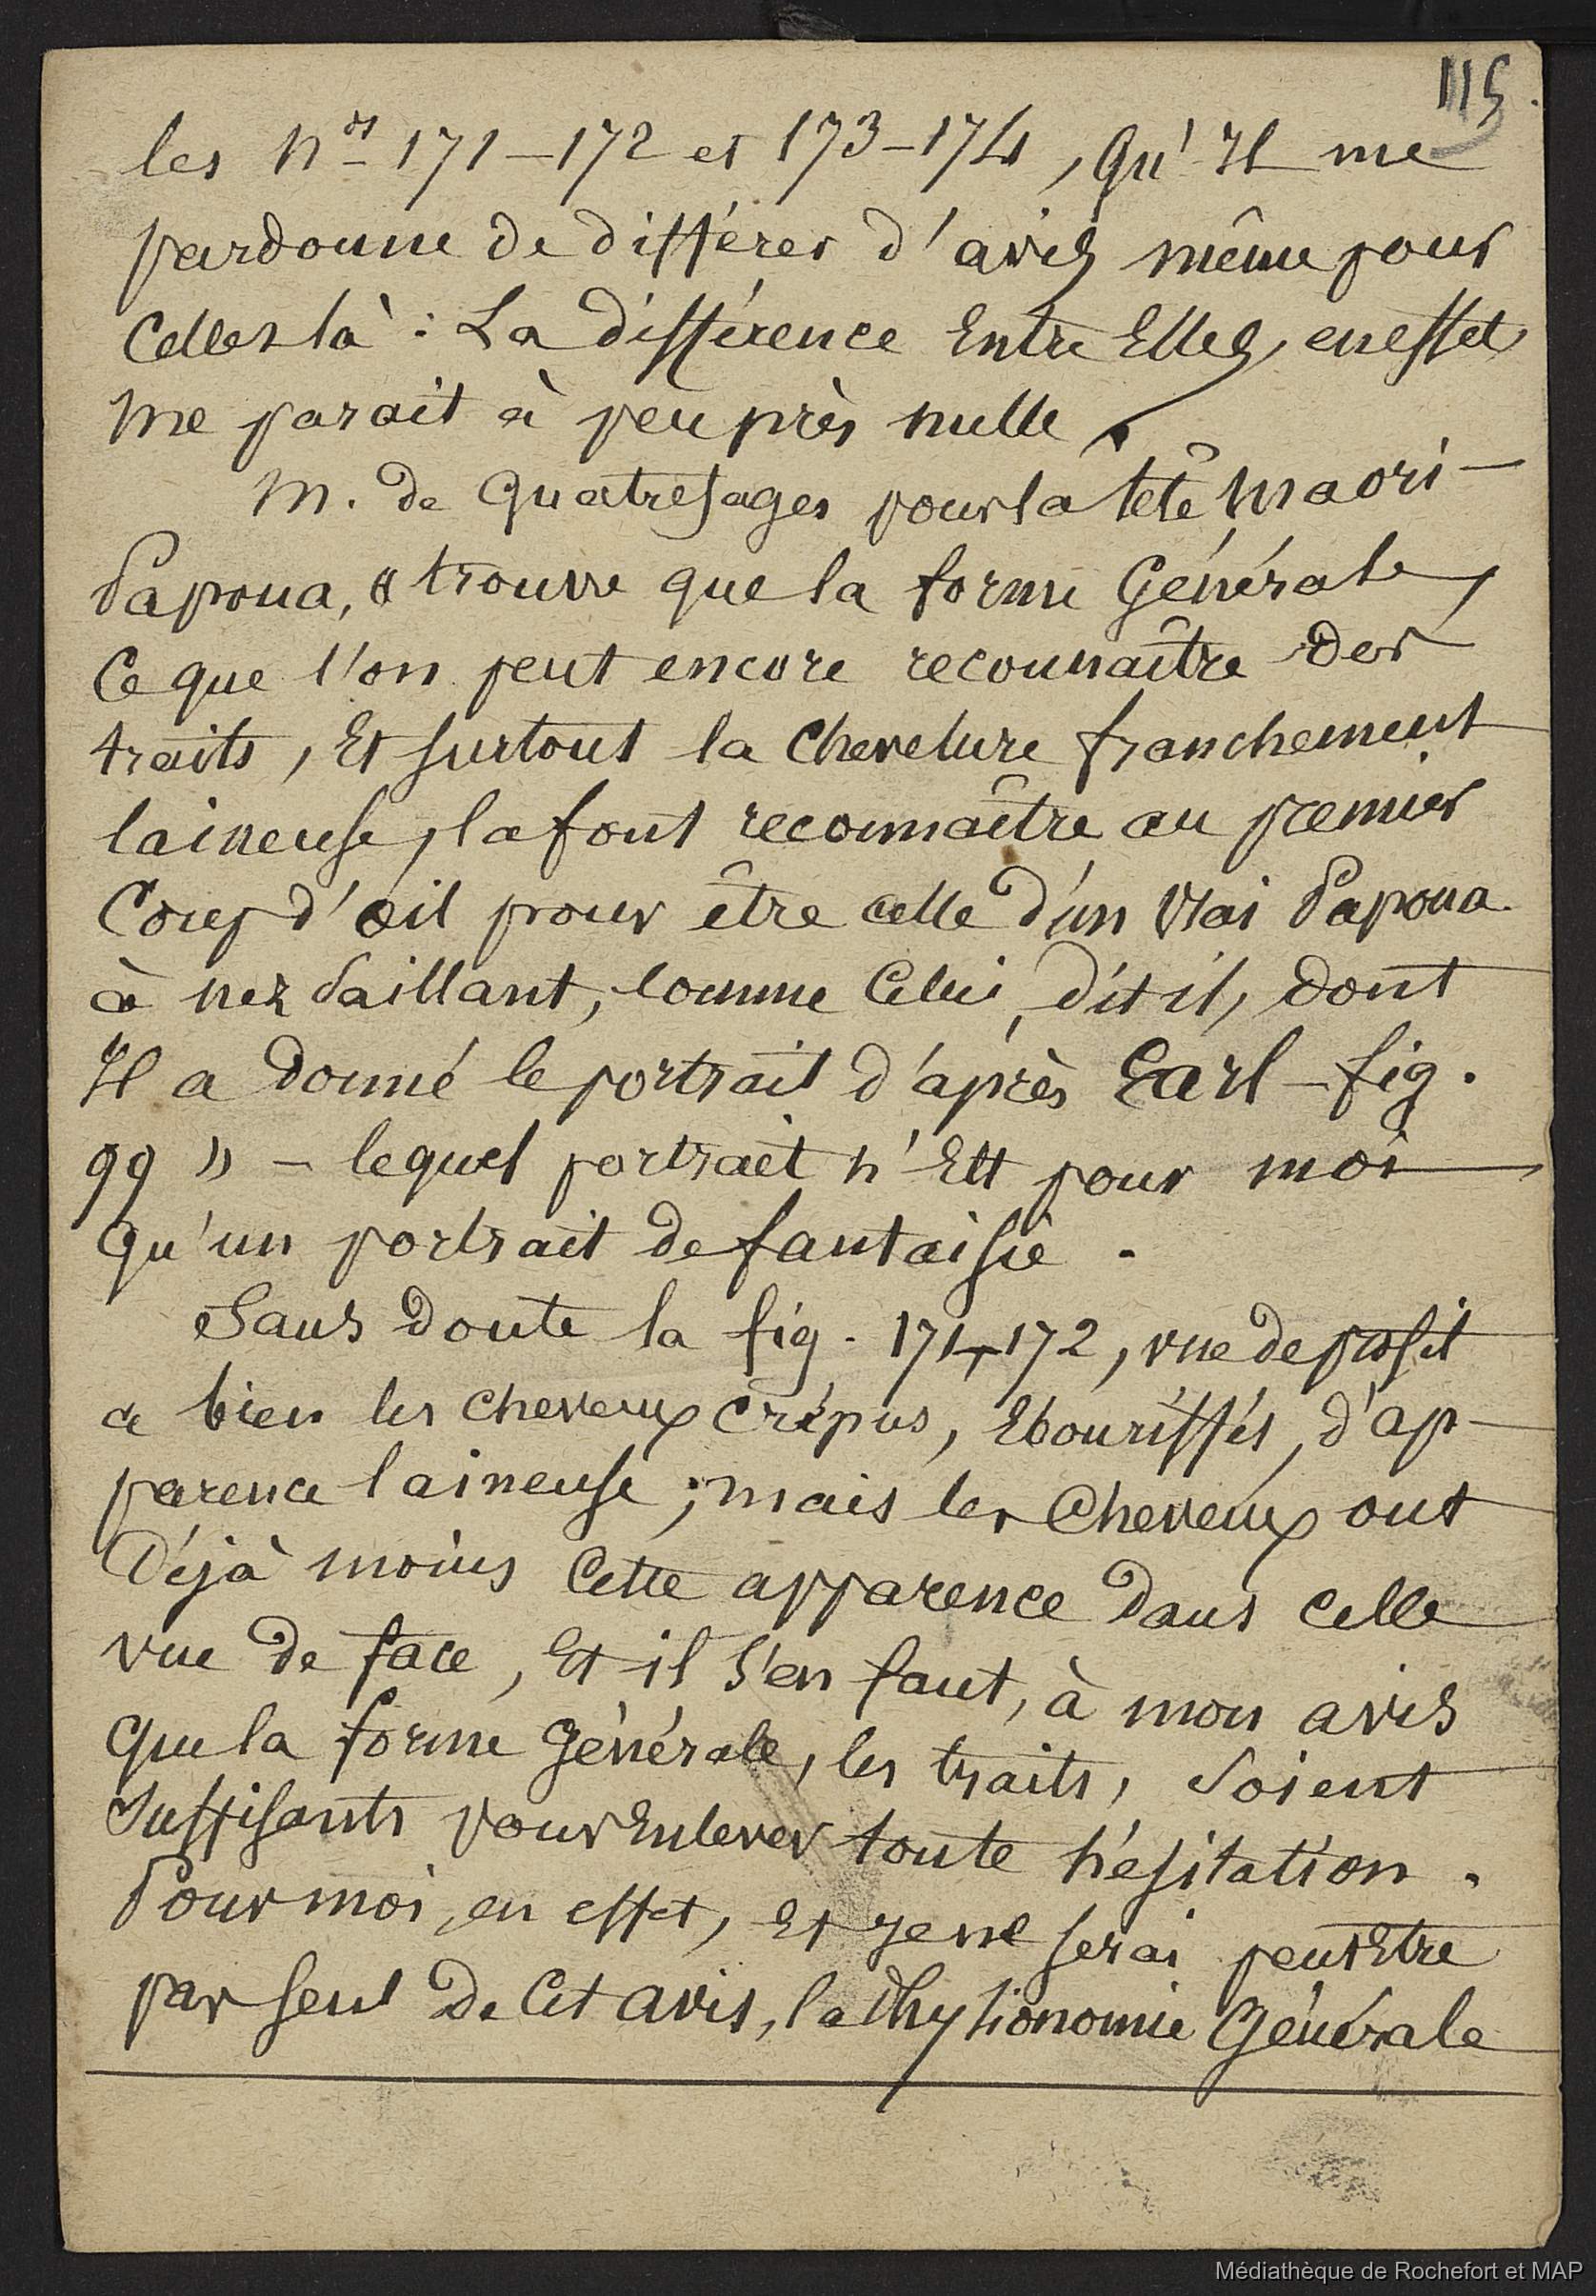 115.
les nos 171–172 et 173–174, qu'il me
pardonne de différer d'avis même pour
celles là : La différence entre Elles, en effet
me parait à peu près nulle.
M. de Quatrefages pour la tête maori-
Papoua, « trouve que la forme Générale,
Ce que l'on peut encore reconnaître des
traits, Et surtout la chevelure franchement
laineuse, la font reconnaître au premier
Coup d'œil pour être celle d'un vrai Papoua
à nez saillant, comme Celui, dit il, dont
Il a donné le portrait d'après Earl – fig.
99 » – lequel portrait n'Est pour moi
qu'un portrait de fantaisie.
Sans doute la fig. 171–172, vue de profil
a bien les cheveux crépus, Ebouriffés, d'ap-
parence laineuse ; mais les Cheveux ont
Déjà moins Cette apparence dans celle
vue de face, Et il s'en faut, à mon avis
que la forme générale, les traits, soient
suffisants pour Enlever toute hésitation.
Pour moi, en effet, Et je ne serai peut Etre
pas seul de Cet avis, la Physionomie Générale
Médiathèque de Rochefort et MAP